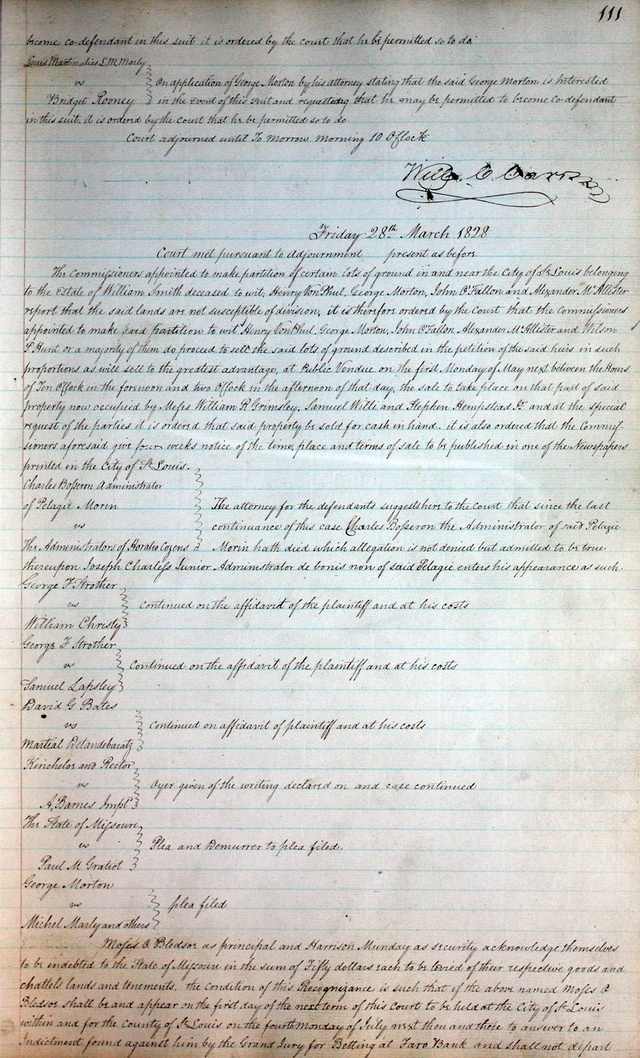 111
become co-defendant in this suit it is ordered by the court that he be permitted so to do
Louis Martin alias L M Marly
vs
On application of George Morton by his attorney stating that the said George Morton is Interested
Bridget Rooney in the event of this suit and requesting that he may be permitted to become co-defendant
in this suit, it is ordered by the Court that he be permitted so to do
Court adjourned until To Morrow Morning 10 OClock
Will C Carr
Friday 28th March 1828
Court met pursuant to adjournment present as before
The Commissioners appointed to make partition of certain lots of ground in and near the City of St Louis belonging
to the Estate of William Smith deceased to wit, Henry Von Phul, George Morton, John O'Fallon and Alexander McAllister
report that the said lands are not susceptible of division, it is therefore ordered by the Court that the Commissioners
appointed to make said partition to wit Henry Von Phul, George Morton, John O'Fallon Alexander McAllister and Wilson
P. Hunt or a majority of them do proceed to sell the said lots of ground described in the petition of the said heirs in such
proportions as will sell to the greatest advantage, at Public Vendue on the first Monday of May next between the Hours
of Ten OClock in the forenoon and two OClock in the afternoon of that day, the sale to take place on that part of said
property now occupied by Messs William R Grimsley, Samuel Willi and Stephen Hempstead Sr and at the special
request of the parties it is ordered that said property be sold for cash in hand. it is also ordered that the Commis-
sioners aforesaid give four weeks notice of the time, place and terms of sale to be published in one of the Newspapers
printed in the City of St Louis.
Charles Bosseron Administrator
of Pelagie Morin
The attorney for the defendants suggests here to the court that since the last
vs
continuance of this case Charles Bosseron the Administrator of said Pelagie
The Administrators of Horatio Cozens Morin hath died which allegation is not denied but admitted to be true
thereupon Joseph Charless Junior Administrator de bonis non of said Pelagie enters his appearance as such
George F Strother
vs continued on the affidavit of the plaintiff and at his costs
William Christy
George F Strother
vs Continued on the affidavit of the plaintiff and at his costs
Samuel Lapsley
David G Bates
vs Continued on affidavit of plaintiff and at his costs
Martial Detandebaratz
Kincheloe and Rector
vs Oyer given of the writing declared on and case continued
A. Barnes Impl
The State of Missouri
vs Plea and Demurrer to plea filed.
Paul M Gratiot
George Morton
vs plea filed
Michel Marly and others
Moses O Bledsoe as principal and Harrison Munday as security acknowledge themselves
to be indebted to the State of Missouri in the sum of Fifty dollars each to be levied of their respective goods and
chattels lands and tenements. the condition of this Recognizance is such that if the above named Moses O
Bledsoe shall be and appear on the first day of the next term of this Court to be held at the City of St Louis
within and for the County of St Louis on the fourth Monday of July next then and there to answer to an
Indictment found against him by the Grand Jury for Betting at Faro Bank and shall not depart